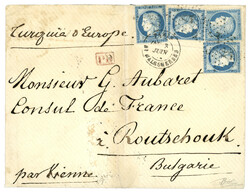 Turquia d'Europe
P.D.
JUIN
Monsieur G. Aubaret
Consul de France
à Routschouk
par Vienne
Bulgarie